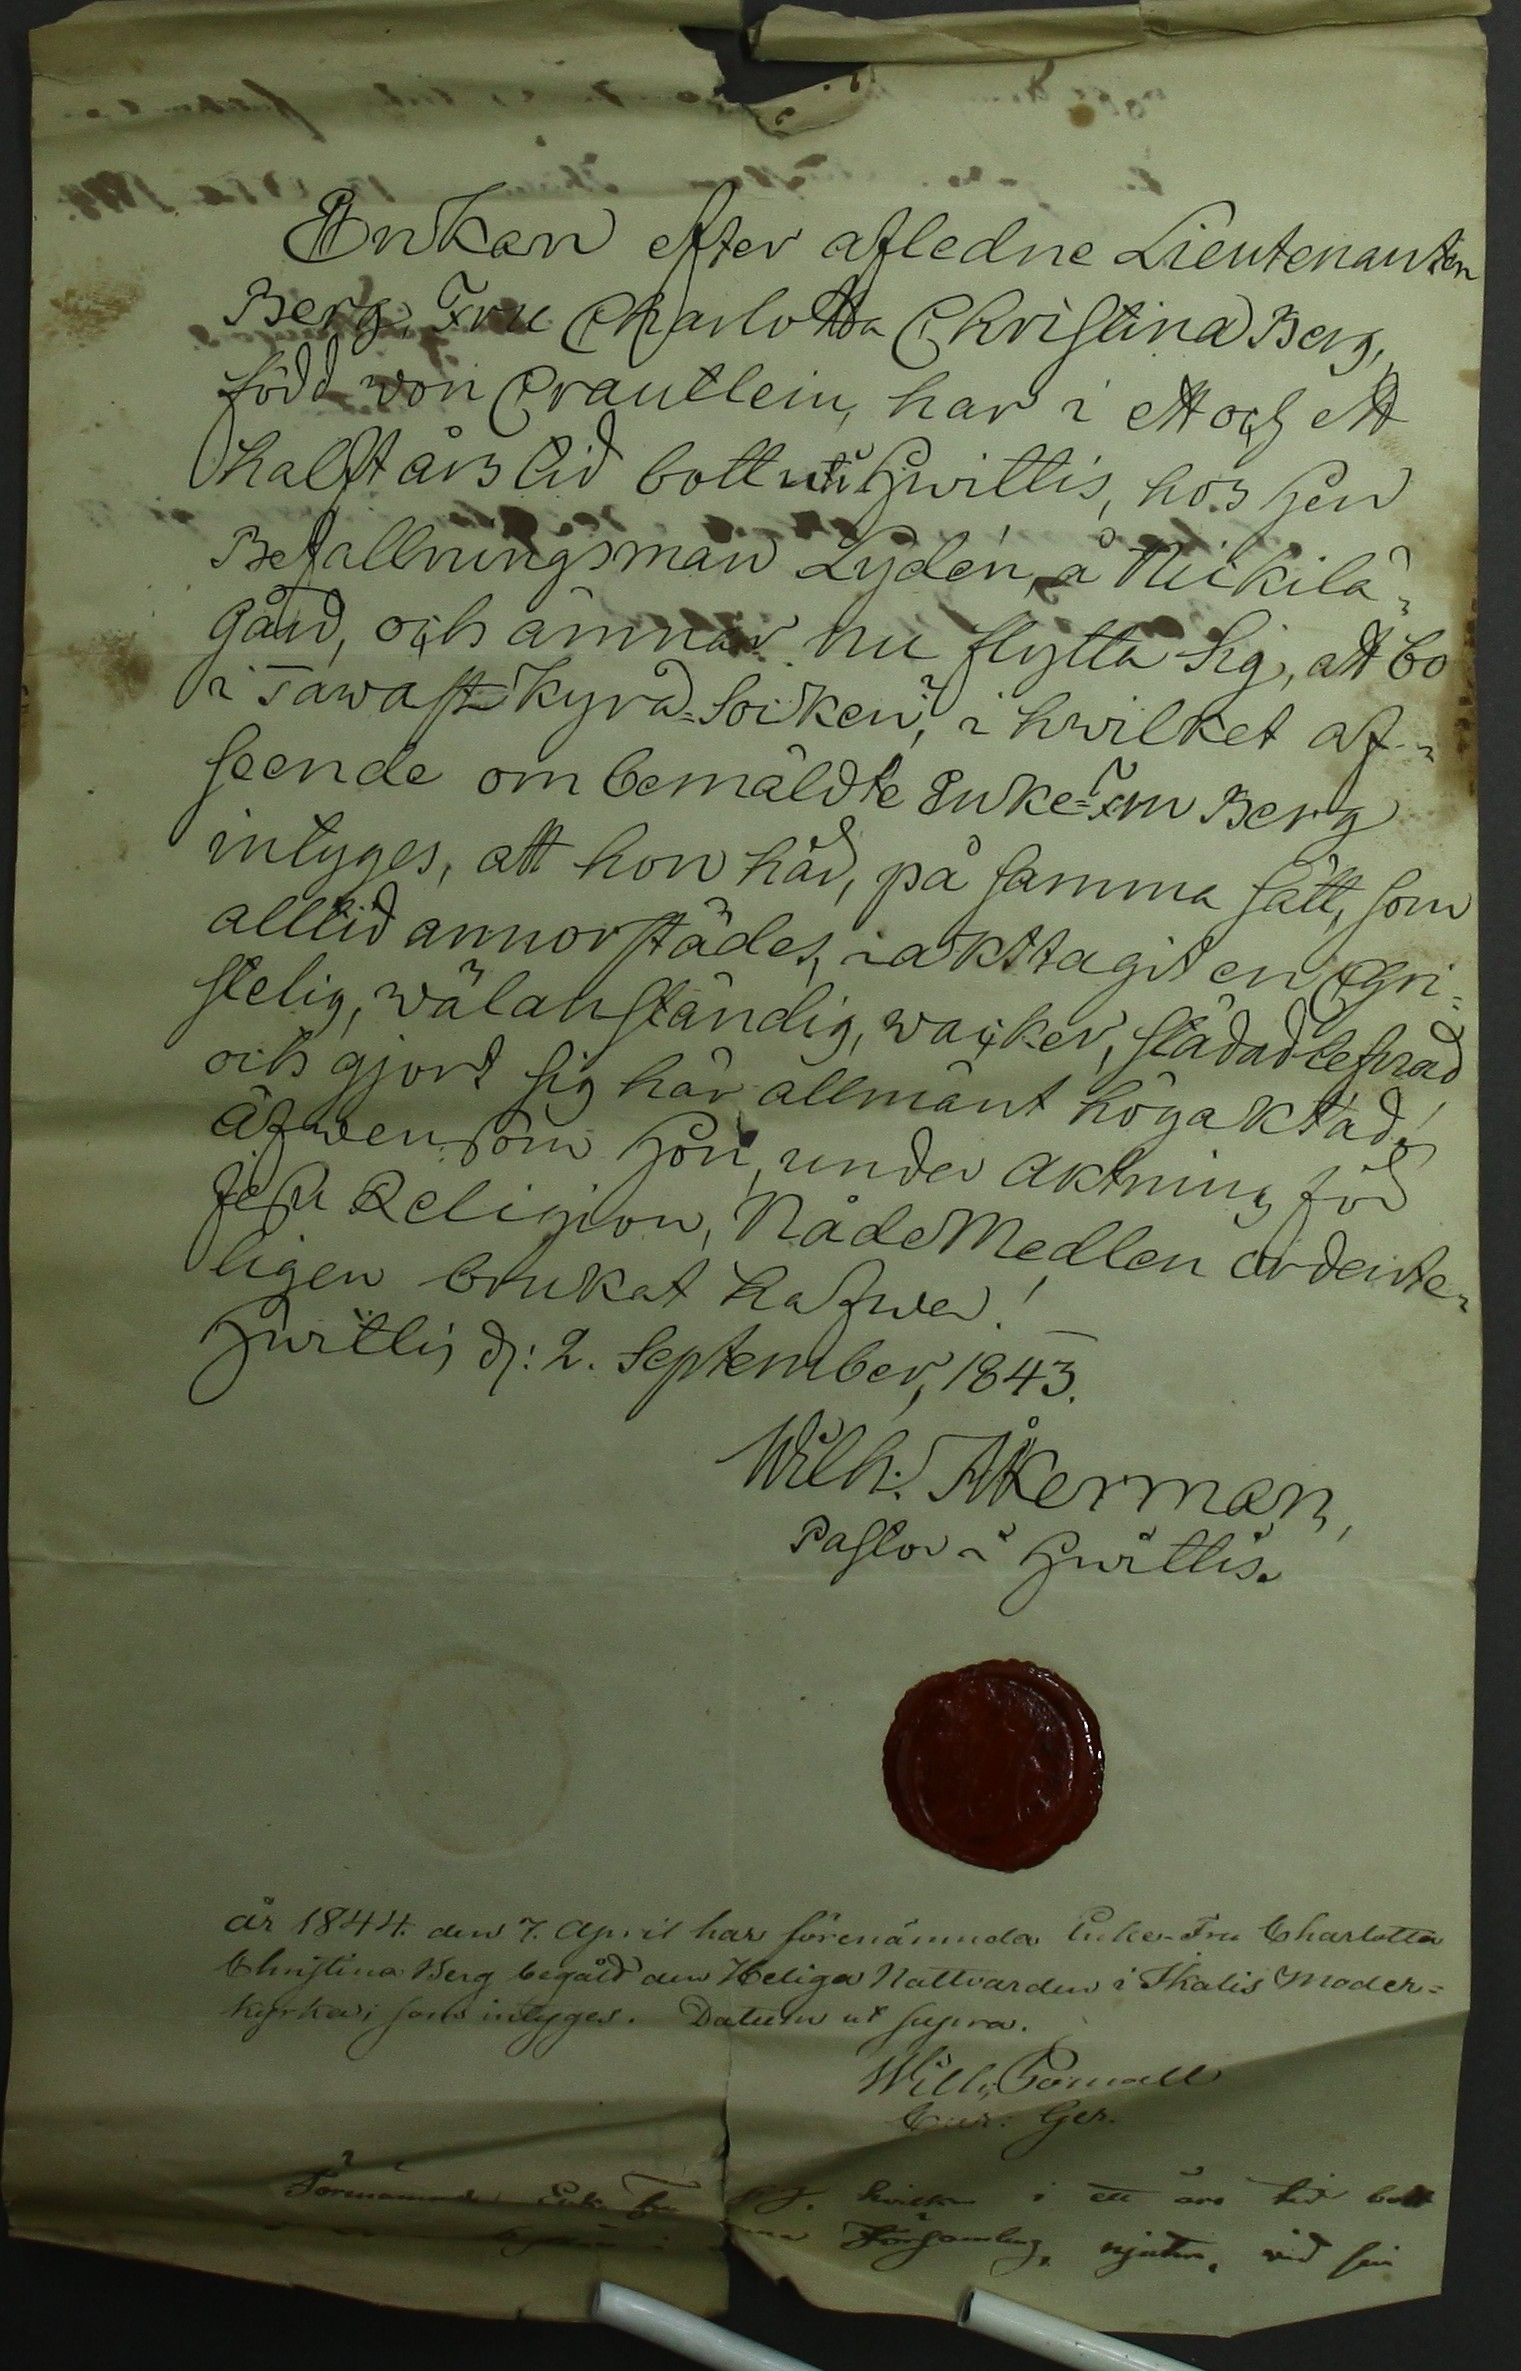 Enkan efter afledne Lieutenanten
Berg, Fru Charlotta Christina Berg,
född von Crautlein, har i ett och ett
halft års tid bott uti Hwittis, hos Hen
Befallningsman Lydén, å Nuikilä-
gård, och ämnar nu flytta sig, att bo
i Tawastkyro-Socken, i hwilket af-
seende om bemäldte Enke-Fru Berg
intyges, att hon här, på samma sätt, som
alltid annorstädes, iakttagit en Chri-
stelig, wälanständig, wacker, stadad lefnad,
och gjort sig här allmänt högaktad!
äfwensom Hon, under aktning för
Jesu Religion, Nådemedlen ordente-
ligen brukat hafwer!
Hwittis d: 2. September, 1843.
Wilh. Åkerman,
Pastor i Hwittis.
år 1844. den 7. April har förenämnda Enke-Fru Charlotta
Christina Berg begått den Heliga Nattvarden i Ikalis Moder-
kyrka; som intyges. Datum ut supra.
Wilh.
Förenämnde Enke Fru hvilken i ett års tid bott
Församling, njuter, vid sin